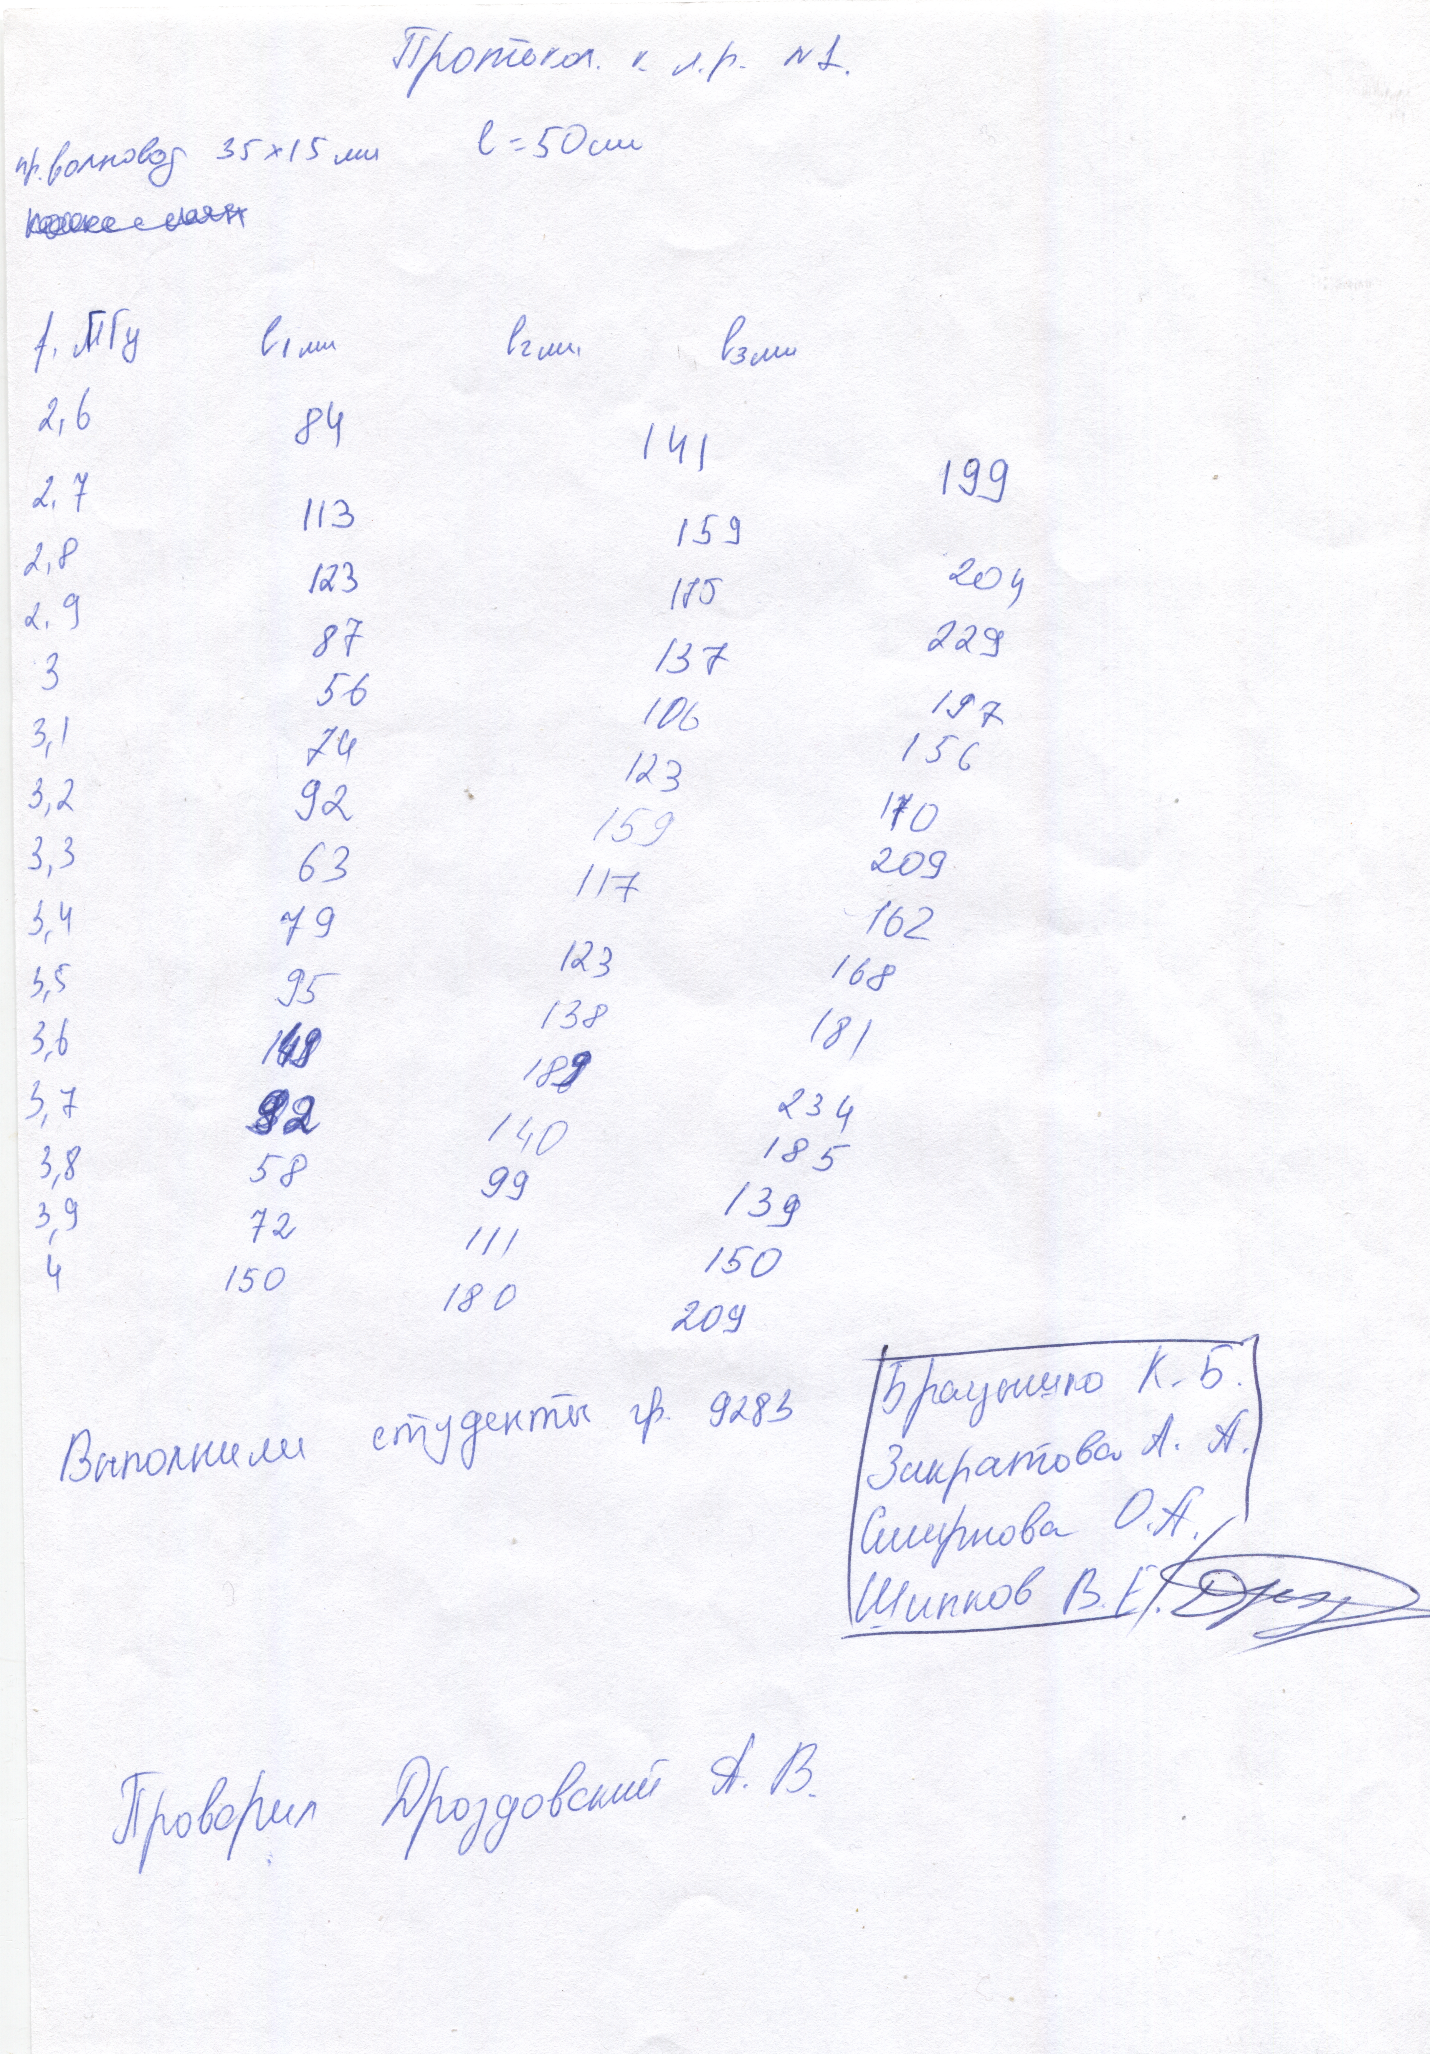 Протокол. к. л.р. №1.
пр. волновод 35×15 мм l=50см
f, МГц l1 мм l2 мм l3 мм
2,6 84 141 199
2,7 113 159 204
2,8 123 175 229
2,9 87 137 197
3 56 106 156
3,1 74 123 170
3,2 92 159 209
3,3 63 117 162
3,4 79 123 168
3,5 95 138 181
3,6 189 234
3,7 140 185
3,8 58 99 139
3,9 72 111 150
4 150 180 209
Выполнили студенты гр. 9283
К. Б.
А. А.
Смирнова О.А.
Шипков В.Е.
Проверил Дроздовский А. В.